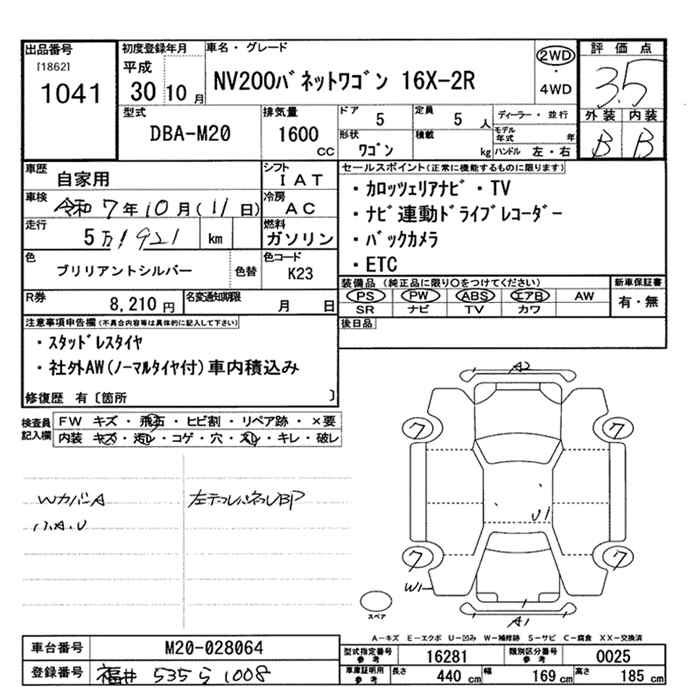 出品番号
[1862]
1041
初度登録年月
平成
30 10 月
車名・グレード
NV200バネットワゴン 16X-2R
2WD
・
4WD
評価点
3.5
外装 内装
B B
型式
DBA-M20
排気量
1600
CC
ドア
5
定員
5 人
形状
ワゴン
積載
kg
ディーラー・並行
モデル年式 年
ハンドル 左・右
車歴
自家用
シフト
IAT
車検
令和 7年10月(11日)
冷房
AC
走行
5万1921 km
燃料
ガソリン
色
ブリリアントシルバー
色替
色コード
K23
R券
8,210 円
名変通知期限
月 日
セールスポイント(正常に機能するものに限ります)
・カロッツェリアナビ・TV
・ナビ連動ドライブレコーダー
・バックカメラ
・ETC
装備品(純正品に限り○をつけてください)
PS PW ABS エアB AW
SR ナビ TV カワ
新車保証書
有・無
後日品
注意事項申告欄(不具合内容等は具体的に記入して下さい)
・スタッドレスタイヤ
・社外AW(ノーマルタイヤ付)車内積込み
修復歴 有〔箇所 〕
検査員記入欄
FW キズ・飛石・ヒビ割・リペア跡・×要
内装 キズ・汚レ・コゲ・穴・スレ・キレ・破レ
WカバーA
ハ.A.U
A2
7 7
U1
7 7
W1
A1
スペア
A-キズ E-エクボ U-凹み W-補修跡 S-サビ C-腐食 XX-交換済
車台番号
M20-028064
登録番号
福井 535 ら 1008
型式指定番号
参考
16281
類別区分番号
参考
0025
車庫証明用
参考
長さ
440 cm
幅
169 cm
高さ
185 cm